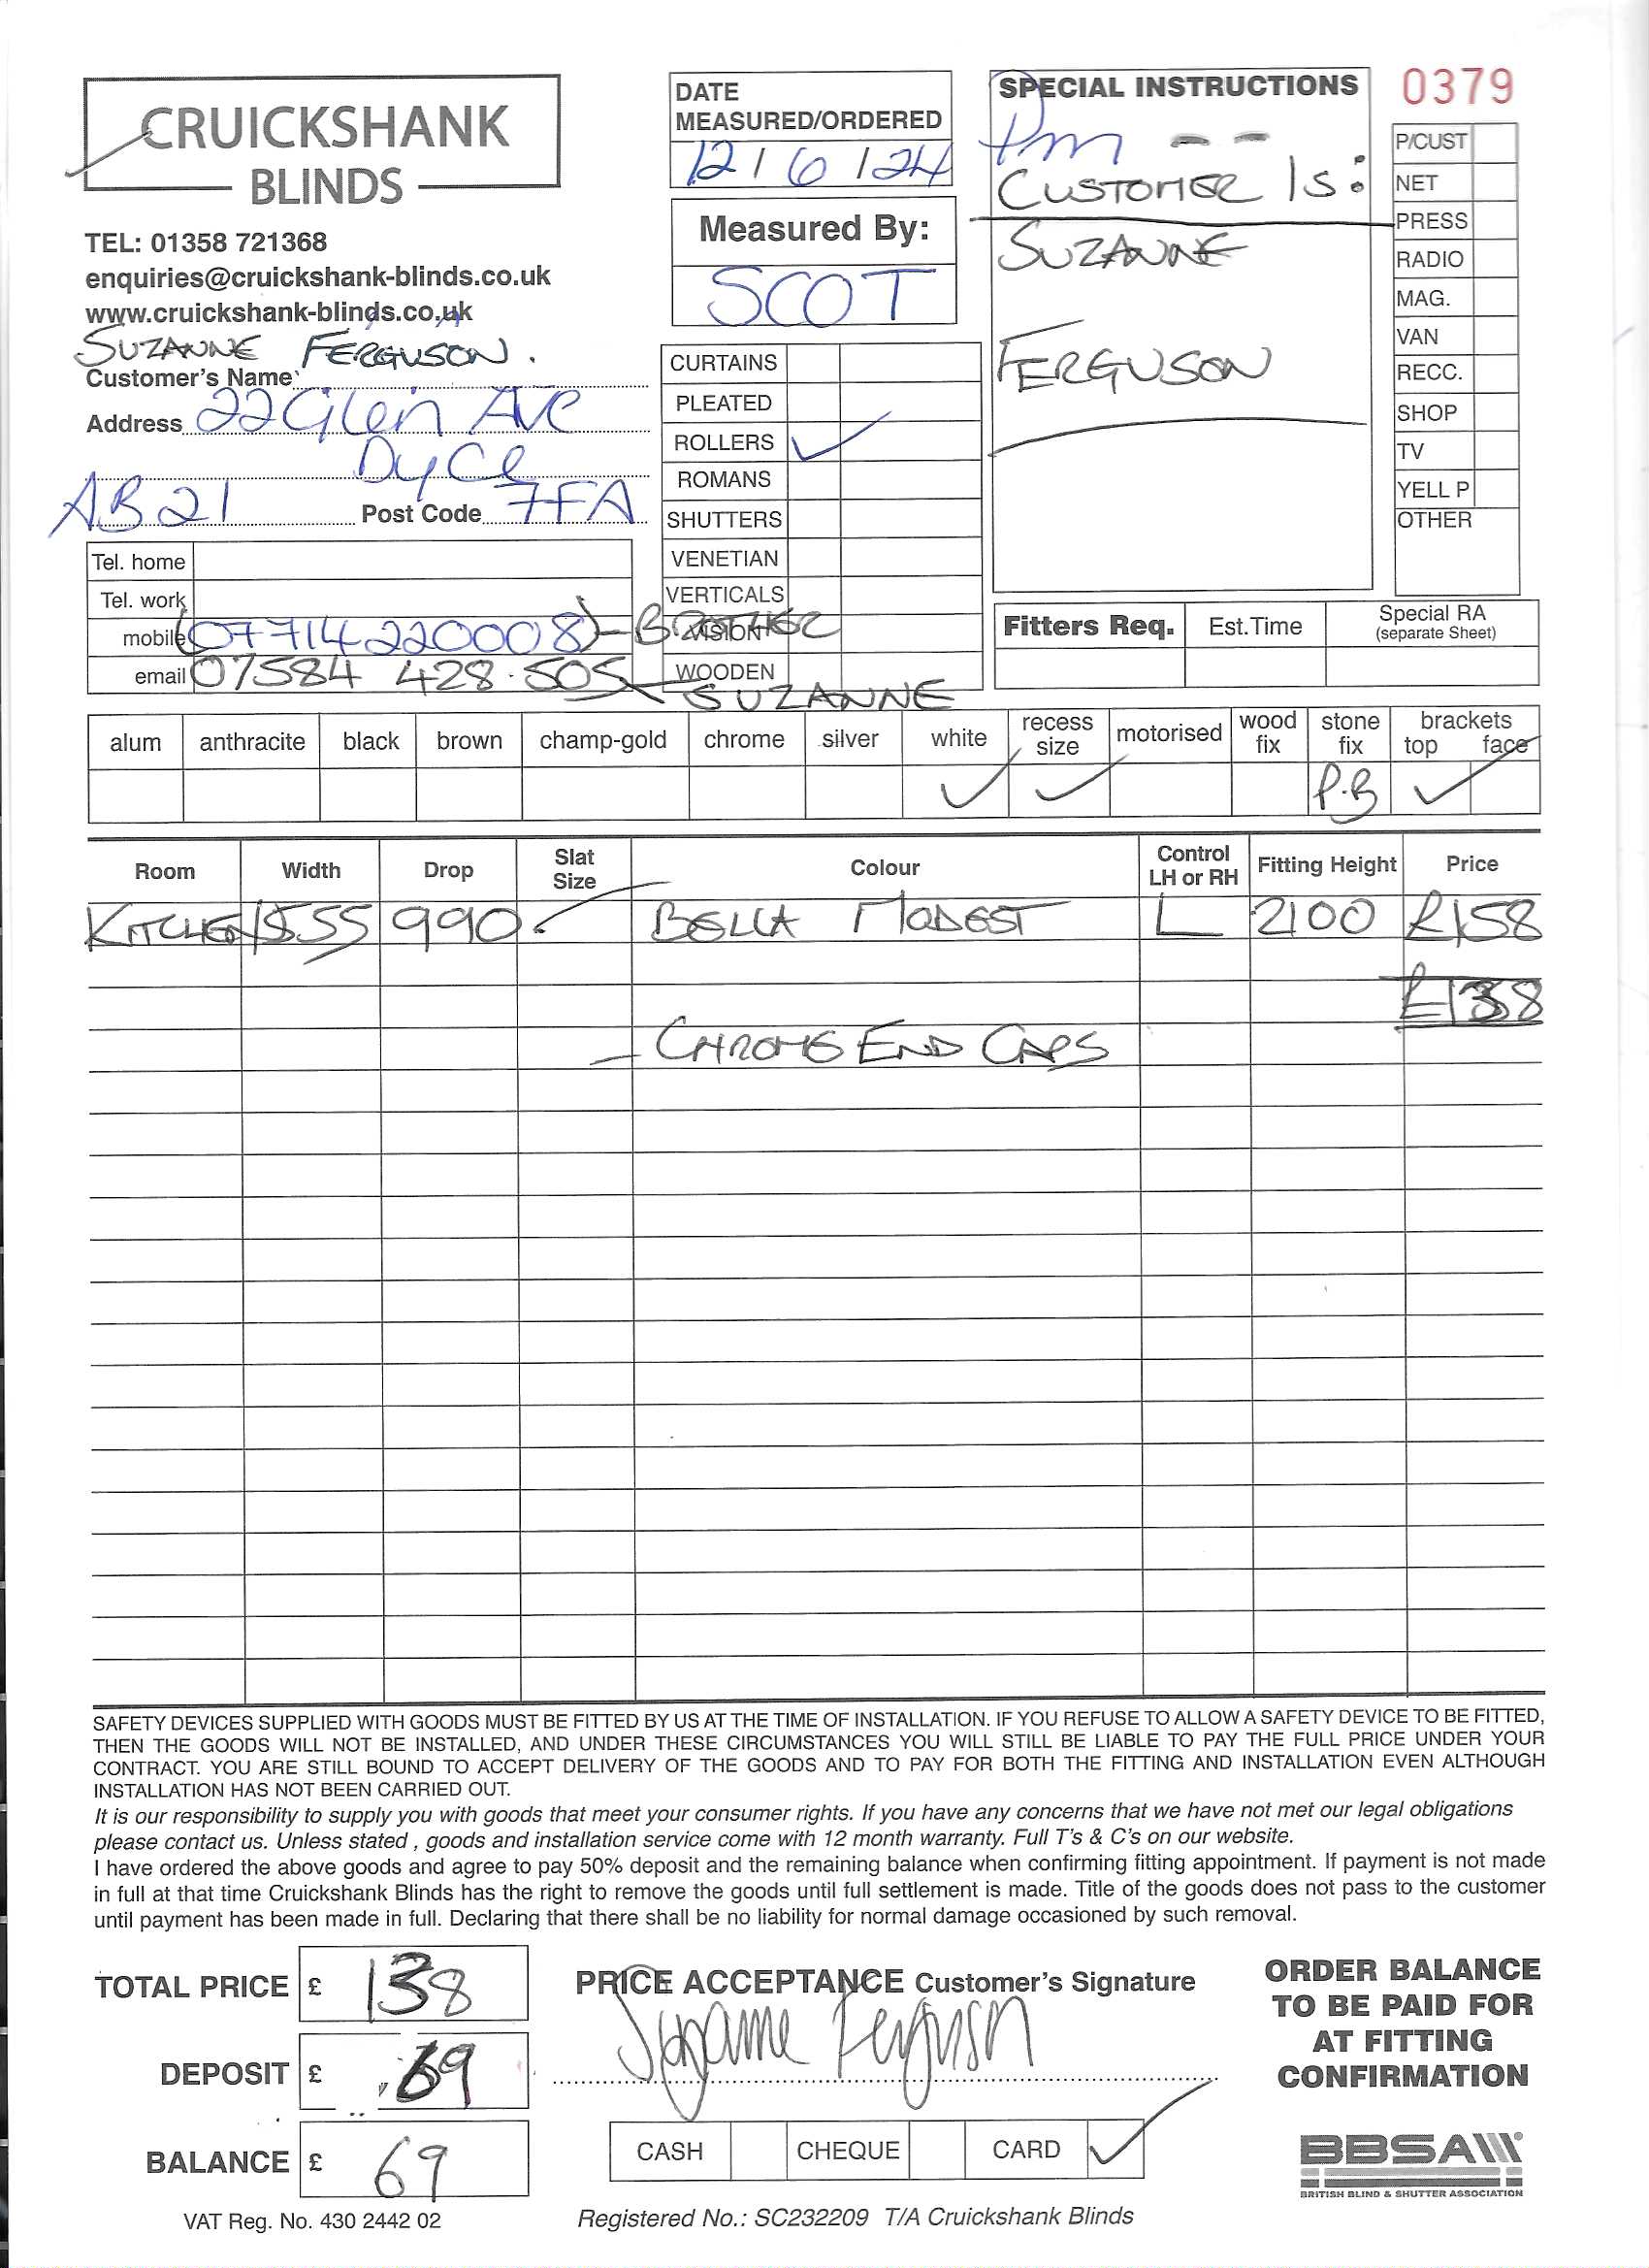 CRUICKSHANK
BLINDS
TEL: 01358 721368
enquiries@cruickshank-blinds.co.uk
www.cruickshank-blinds.co.uk
SUZANNE FERGUSON.
Customer's Name
Address 22 Glen Ave
Dyce
AB21 Post Code 7FA
Tel. home
Tel. work
mobile (07714220008) - BROTHER
email 07584 428.505 - SUZANNE
DATE
MEASURED/ORDERED
12/6/24
Measured By:
SCOT
CURTAINS
PLEATED
ROLLERS ✓
ROMANS
SHUTTERS
VENETIAN
VERTICALS
VISION
WOODEN
SPECIAL INSTRUCTIONS
Pm - -
CUSTOMER IS:
SUZANNE
FERGUSON
0379
P/CUST
NET
PRESS
RADIO
MAG.
VAN
RECC.
SHOP
TV
YELL P
OTHER
Fitters Req. Est.Time Special RA
(separate Sheet)
alum anthracite black brown champ-gold chrome silver white recess size motorised wood fix stone fix brackets top face
✓ ✓ P.B ✓
Room Width Drop Slat Size Colour Control LH or RH Fitting Height Price
KITCHEN 1555 990 BELLA MODEST L 2100 £158
£138
- CHROME END CAPS
SAFETY DEVICES SUPPLIED WITH GOODS MUST BE FITTED BY US AT THE TIME OF INSTALLATION. IF YOU REFUSE TO ALLOW A SAFETY DEVICE TO BE FITTED,
THEN THE GOODS WILL NOT BE INSTALLED, AND UNDER THESE CIRCUMSTANCES YOU WILL STILL BE LIABLE TO PAY THE FULL PRICE UNDER YOUR
CONTRACT. YOU ARE STILL BOUND TO ACCEPT DELIVERY OF THE GOODS AND TO PAY FOR BOTH THE FITTING AND INSTALLATION EVEN ALTHOUGH
INSTALLATION HAS NOT BEEN CARRIED OUT.
It is our responsibility to supply you with goods that meet your consumer rights. If you have any concerns that we have not met our legal obligations
please contact us. Unless stated , goods and installation service come with 12 month warranty. Full T's & C's on our website.
I have ordered the above goods and agree to pay 50% deposit and the remaining balance when confirming fitting appointment. If payment is not made
in full at that time Cruickshank Blinds has the right to remove the goods until full settlement is made. Title of the goods does not pass to the customer
until payment has been made in full. Declaring that there shall be no liability for normal damage occasioned by such removal.
TOTAL PRICE £ 138
DEPOSIT £ 69
BALANCE £ 69
VAT Reg. No. 430 2442 02
PRICE ACCEPTANCE Customer's Signature
Suzanne Ferguson
CASH CHEQUE CARD ✓
Registered No.: SC232209 T/A Cruickshank Blinds
ORDER BALANCE
TO BE PAID FOR
AT FITTING
CONFIRMATION
BBSA
BRITISH BLIND & SHUTTER ASSOCIATION